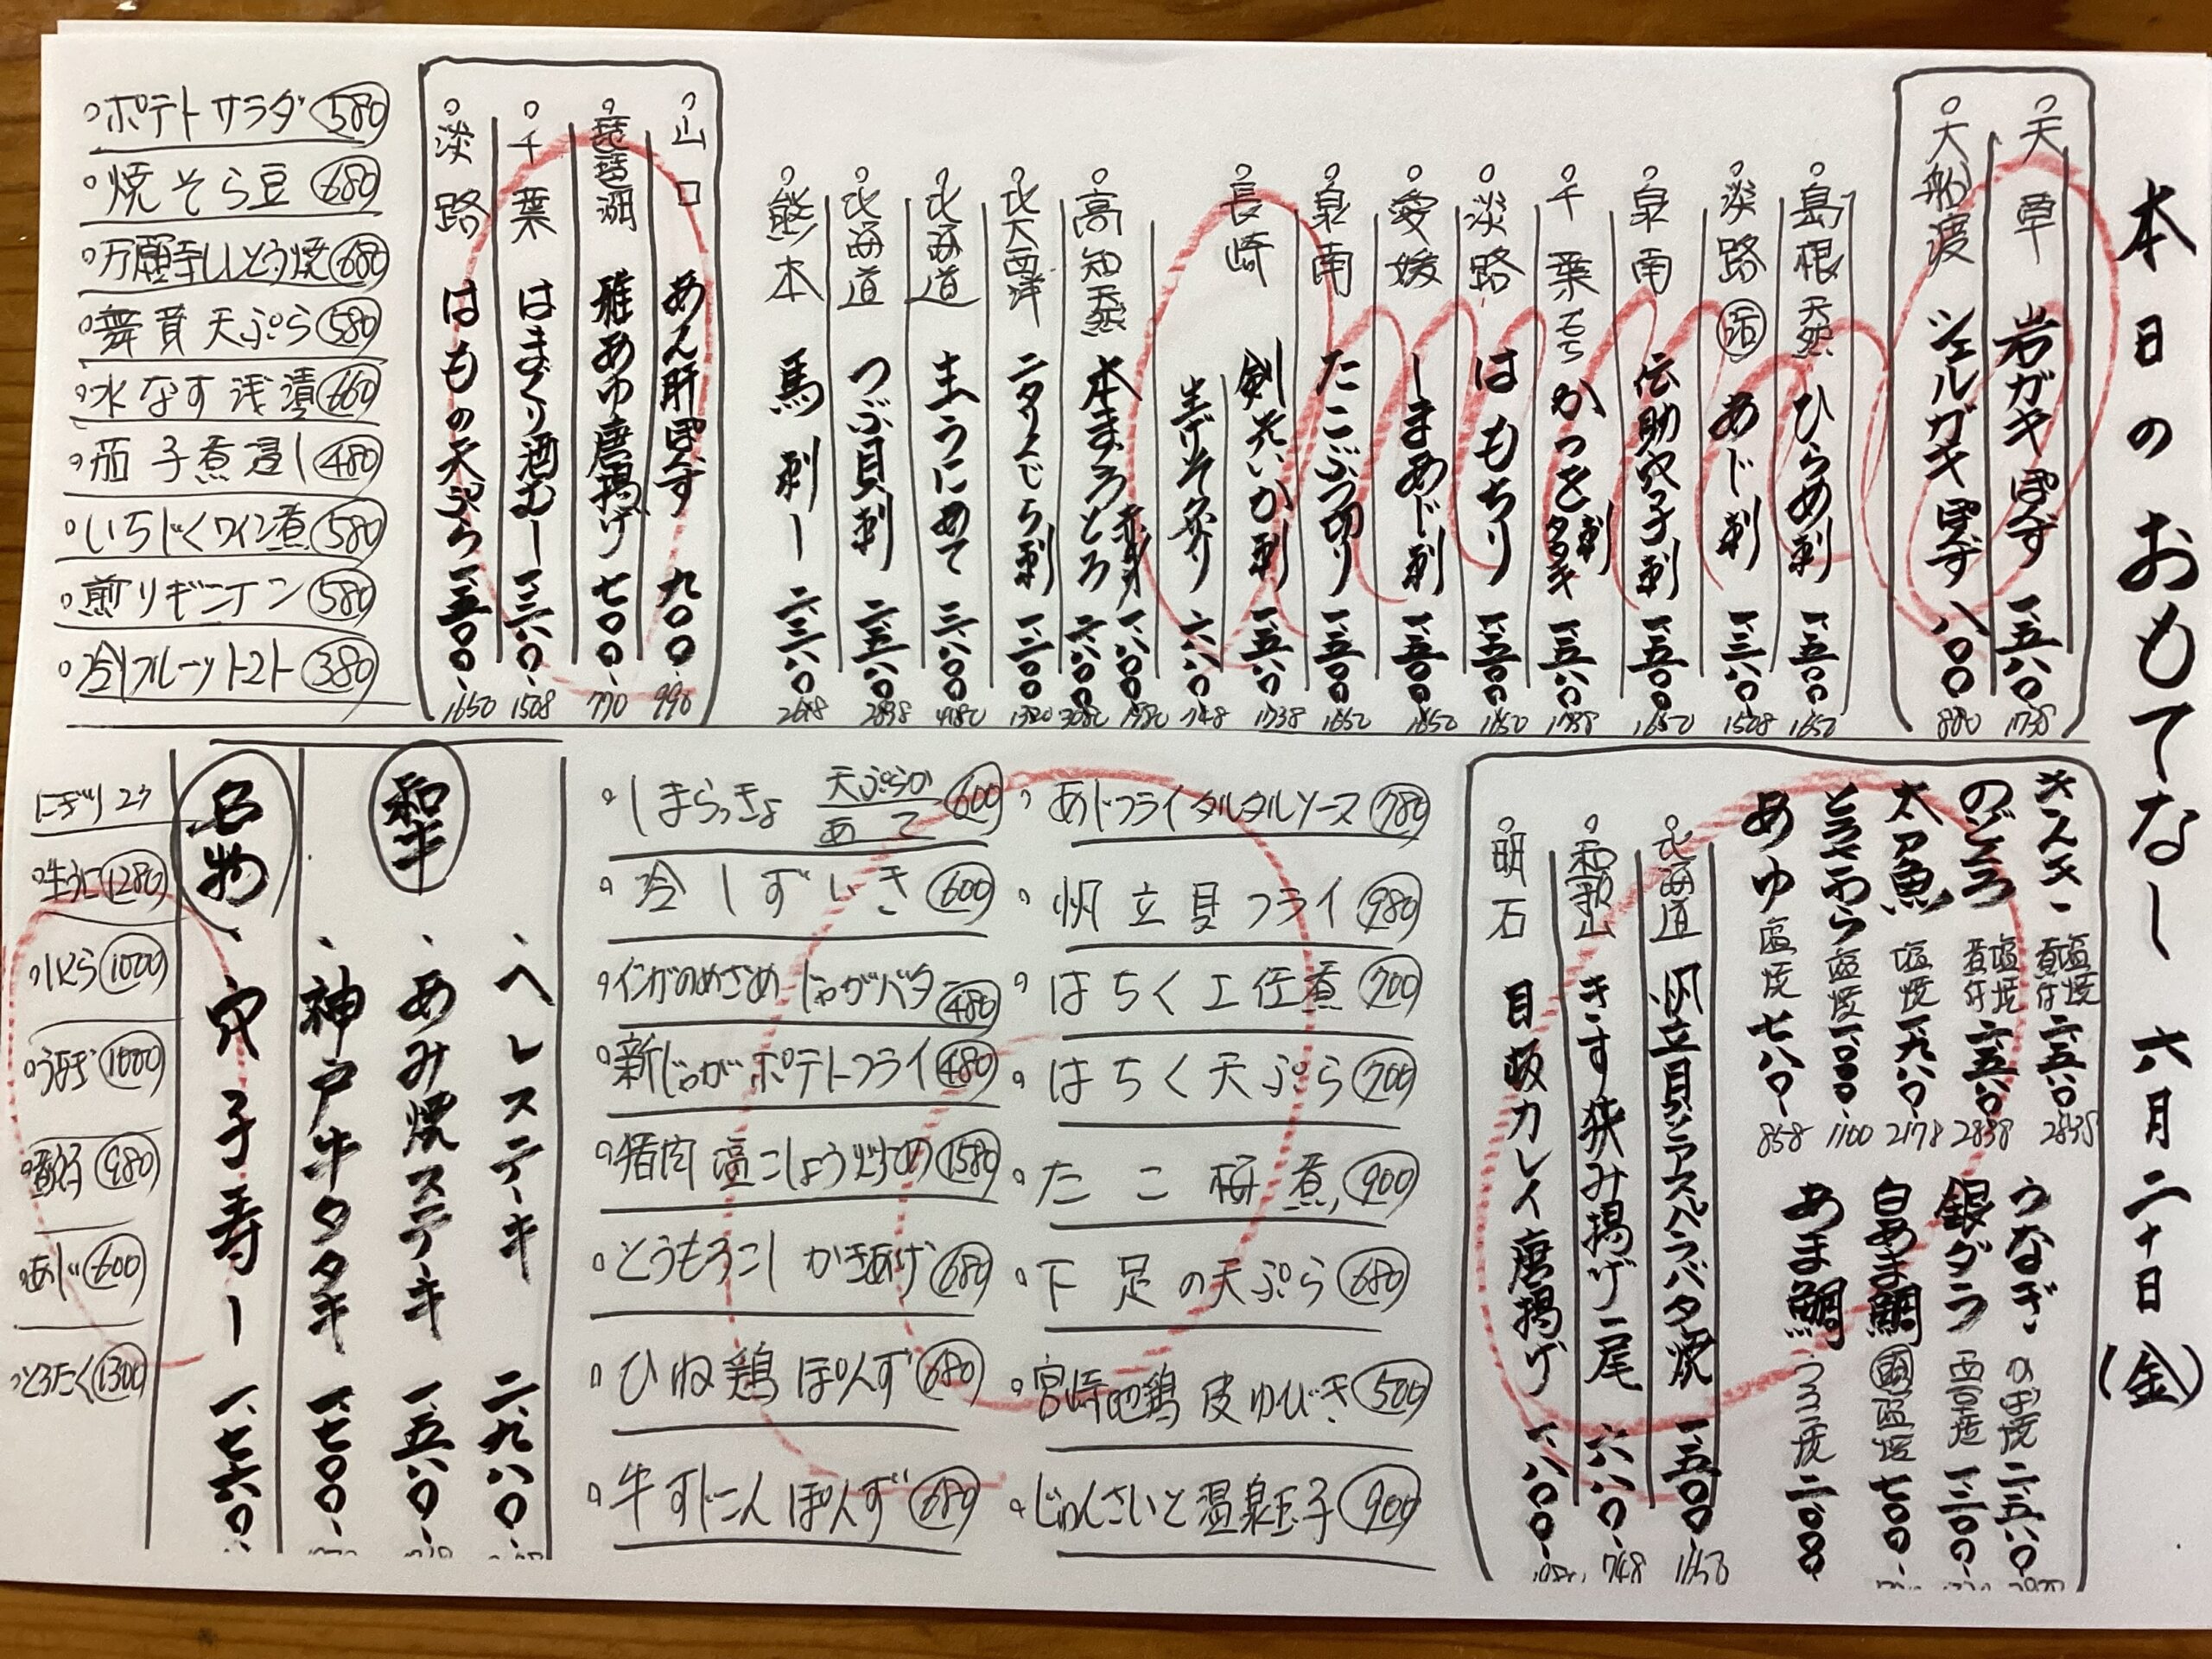 本日のおもてなし 六月二十日(金)
天草 岩ガキぽんず 一、五八〇 1738
大船渡 シェルガキぽんず 八〇〇 880
島根 天然 ひらめ刺 一、五〇〇 1650
淡路 活 あじ刺 一、三八〇 1508
泉南 伝助穴子刺 一、五〇〇 1650
千葉 もち かつを 刺 タタキ 一、五八〇 1738
淡路 はもちり 一、五〇〇 1650
愛媛 しまあじ刺 一、五〇〇 1650
泉南 たこぶつ切り 一、五〇〇 1650
長崎 剣先いか刺 一、五八〇 1738
生げそ炙り 六八〇 748
高知 天然 本まぐろ 赤身 一、八〇〇 1980
とろ 二、八〇〇 3080
北大西洋 ニタリくじら刺 一、二〇〇 1320
北海道 生うにあて 三、八〇〇 4180
北海道 つぶ貝刺 二、五八〇 2838
熊本 馬刺し 二、三八〇 2618
山口 あん肝ぽんず 九〇〇 990
琵琶湖 稚あゆ唐揚げ 七〇〇 770
千葉 はまぐり酒むし 一、三八〇 1508
淡路 はもの天ぷら 一、五〇〇 1650
ポテトサラダ 580
焼そら豆 680
万願寺ししとう焼 680
舞茸天ぷら 580
水なす浅漬 660
茄子煮浸し 480
いちじくワイン煮 580
煎りギンナン 580
冷しフルーツトマト 380
きんき 塩焼 煮付 二、五八〇 2838
のどぐろ 塩焼 煮付 二、五八〇 2838
太刀魚 塩焼 一、九八〇 2178
とろさわら 塩焼 一、〇〇〇 1100
あゆ 塩焼 七八〇 858
うなぎ のぼ焼 二、五八〇
銀ダラ 西京焼 一、二〇〇
白あま鯛 塩焼 七〇〇
あま鯛 うろこ焼 二、〇〇〇
北海道 帆立貝とアスパラバタ焼 一、五〇〇 1650
和歌山 きす挟み揚げ二尾 六八〇 748
明石 目板カレイ唐揚げ 一、八〇〇
あじフライタルタルソース 780
帆立貝フライ 980
はちく土佐煮 700
はちく天ぷら 700
たこ梅煮 900
下足の天ぷら 680
宮崎地鶏皮ゆびき 500
じゅんさいと温泉玉子 900
しまらっきょ 天ぷらか あて 600
冷しずいき 600
インカのめざめ じゃがバタ 480
新じゃがポテトフライ 480
猪肉塩こしょう炒め 1580
とうもろこし かきあげ 680
ひね鶏ぽんず 680
牛すじこんぽんず 680
和牛
ヘレステーキ 二、九八〇
あみ焼ステーキ 一、五八〇
神戸牛タタキ 一、七〇〇
名物 穴子寿し 一、七六〇
にぎり 2ヶ
生うに 1280
いくら 1000
うなぎ 1000
あじ 600
とろたく 1300